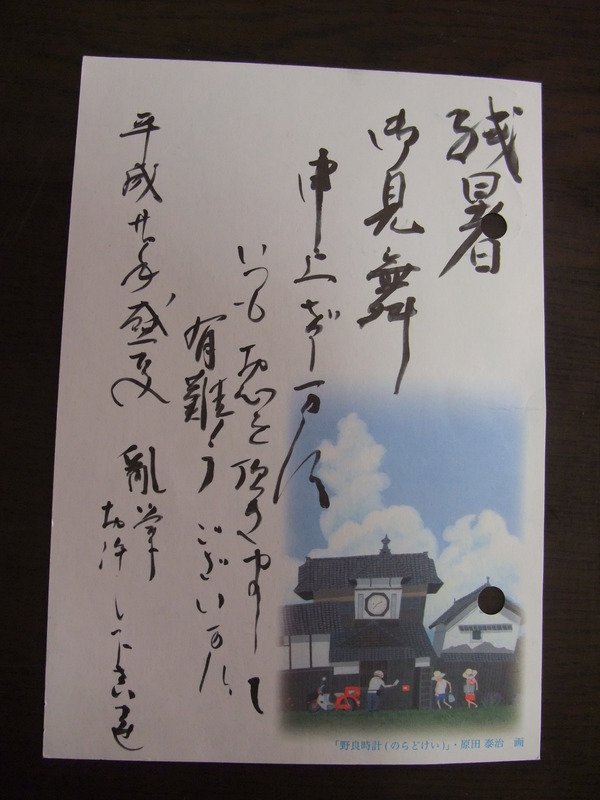 残暑
御見舞
申上げます
いつもお心を頂きまして
有難うございます
平成廿年盛夏 亂筆
お許し下さいませ
「野良時計(のらどけい)」・原田 泰治 画